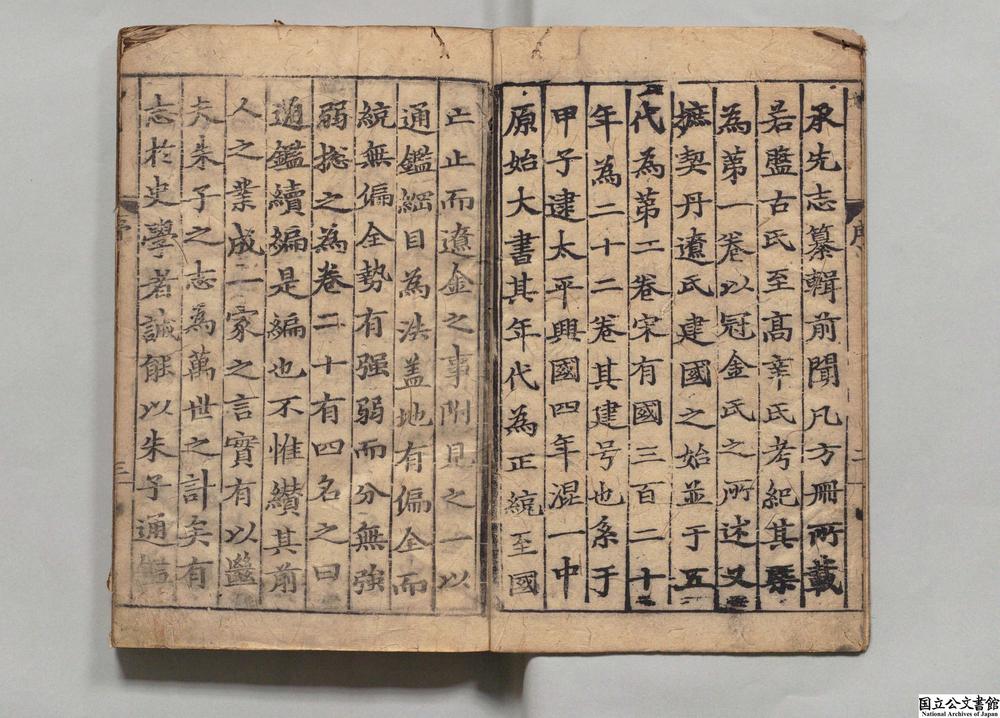 承先志纂輯前聞凡方冊所載
若盤古氏至高辛氏考紀其槩
為第一卷以冠金氏之所述又
摭契丹遼氏建國之始並于五
代為第二卷宋有國三百二十
年為二十二卷其建号也系于
甲子逮太平興國四年混一中
原始大書其年代為正統至國
序
二
亡止而遼金之事附見之一以
通鑑綱目為法盖地有偏全而
統無偏全勢有强弱而分無強
弱捴之為卷二十有四名之曰
通鑑續編是編也不惟纉其前
人之業成一家之言實有以繼
夫朱子之志為萬世之計矣有
志於史學者誠能以朱子通鑑
序
三
国立公文書館
National Archives of Japan